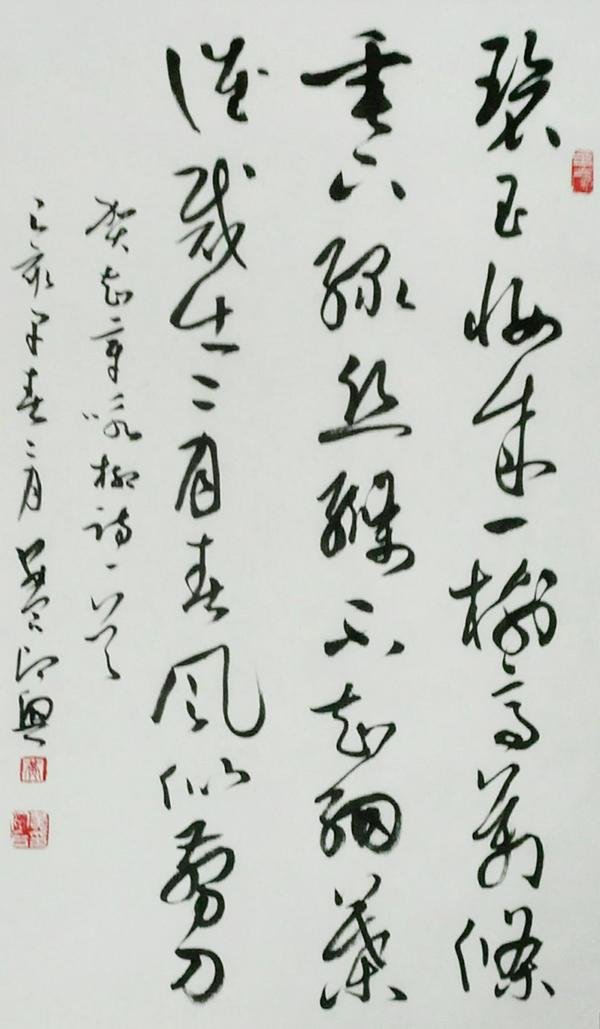 碧玉妝成一樹高萬條
垂下綠絲縧不知細葉
誰裁出二月春風似剪刀
賀知章咏柳詩一首
己亥早春二月